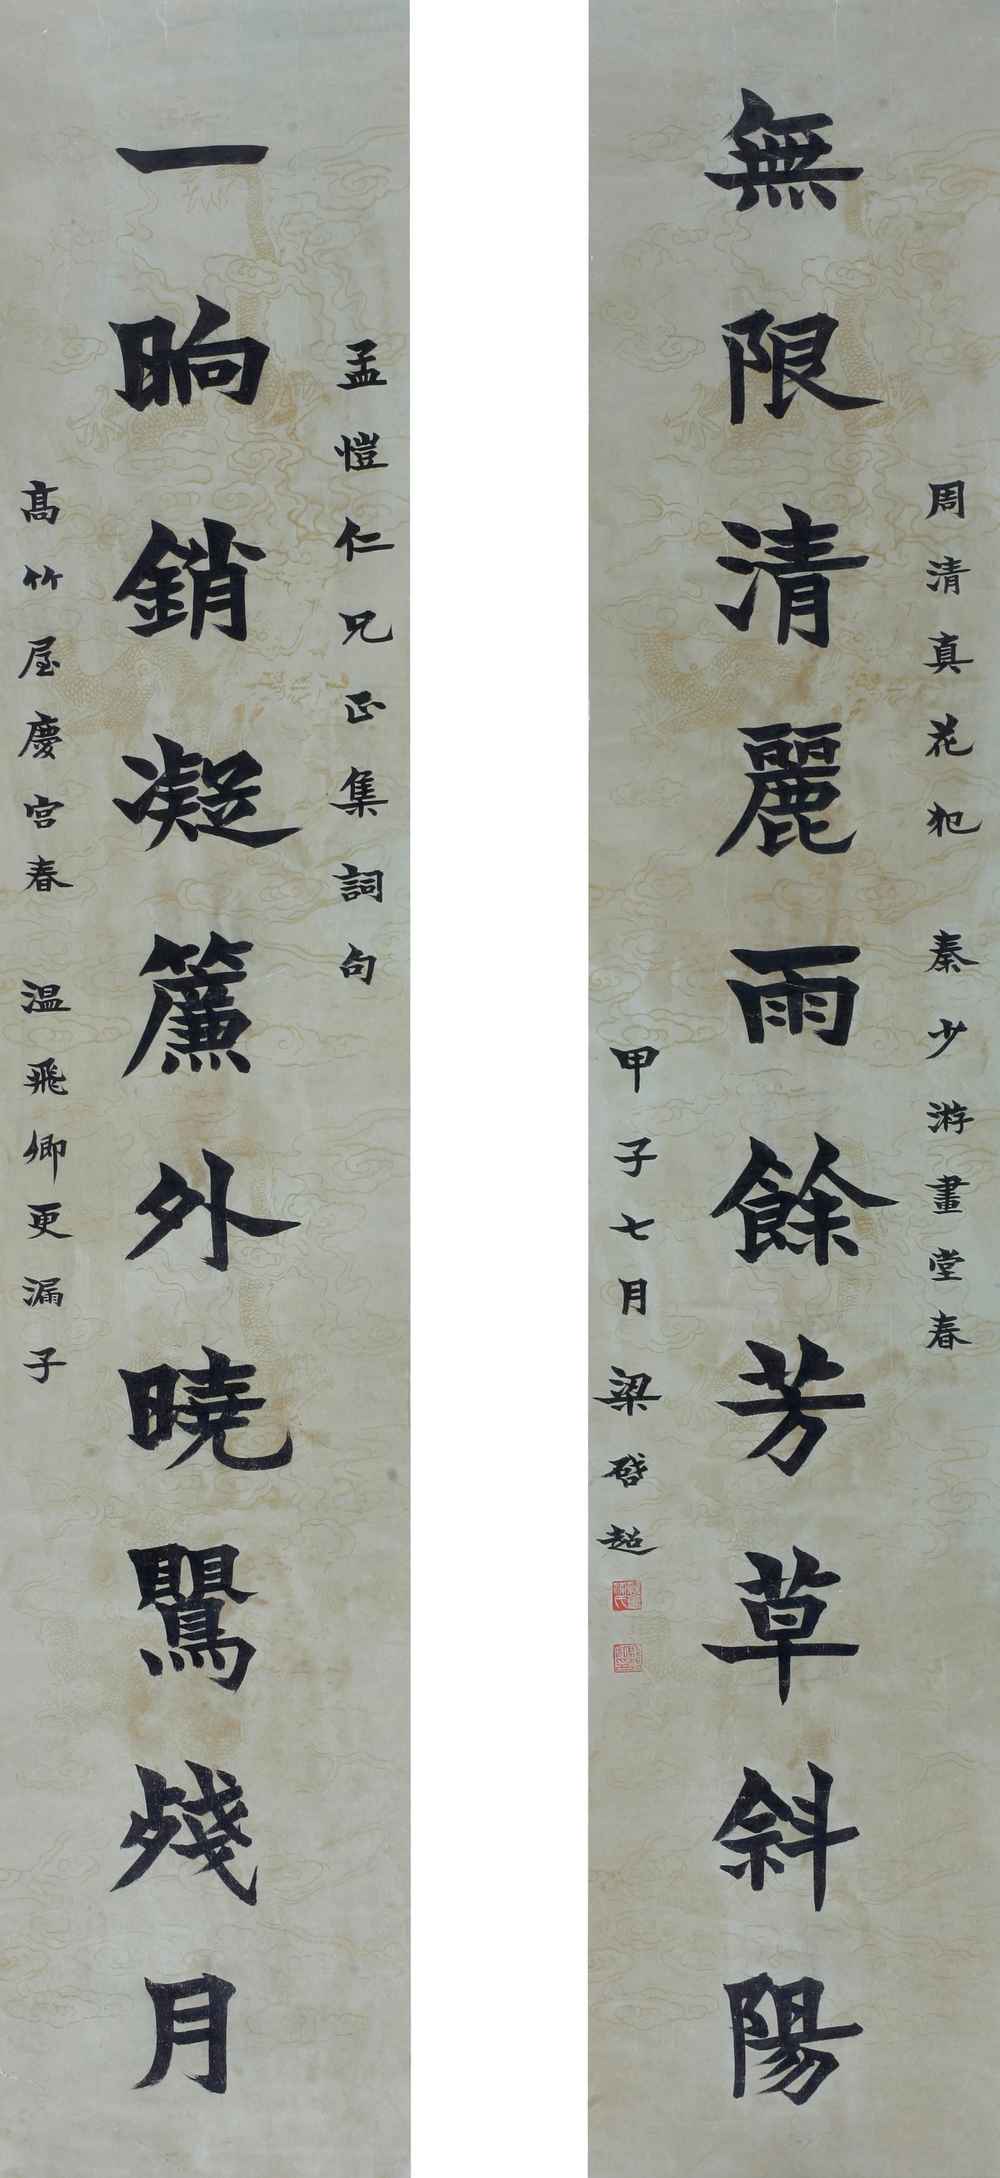 無限清麗雨餘芳草斜陽
周清真花犯 秦少游畫堂春
甲子七月梁啓超
一晌銷凝簾外曉鶯殘月
孟愷仁兄正集詞句
高竹屋慶宮春 温飛卿更漏子